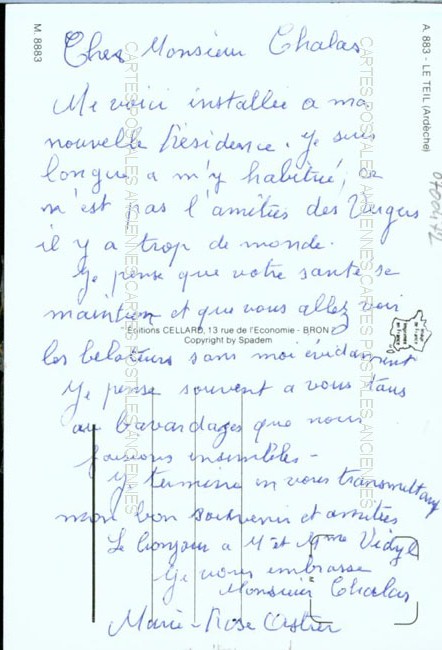 Cher Monsieur Chalas
Me voici installée a ma
nouvelle Résidence. Je suis
longue a m'y habitué, se
n'est pas l'amitiés des Vergers
il y a trop de monde.
Je pense que votre santé se
maintien et que vous allez voir
les beloteurs sans moi évidament
Je pense souvent a vous tous
au bavardages que nous
faisions ensembles -
Je termine en vous transmettant
mon bon souvenir et amitiés
Le bonjour a M et Mme
Je vous embrasse
Monsieur Chalas
Marie-Rose
M. 8883
A. 883 - LE TEIL (Ardèche)
Editions CELLARD, 13 rue de l'Economie - BRON
Copyright by Spadem
CARTES POSTALES ANCIENNES CARTES POSTALES ANCIENNES
CARTES POSTALES ANCIENNES CARTES POSTALES ANCIENNES